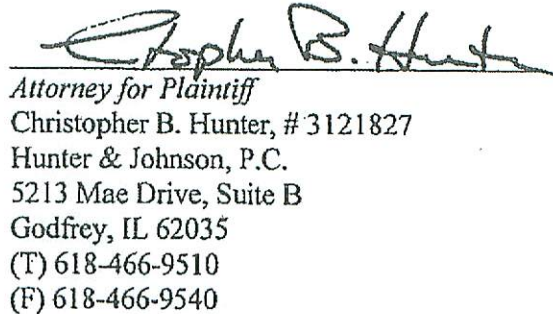 Christopher B. Hunter
Attorney for Plaintiff
Christopher B. Hunter, # 3121827
Hunter & Johnson, P.C.
5213 Mae Drive, Suite B
Godfrey, IL 62035
(T) 618-466-9510
(F) 618-466-9540